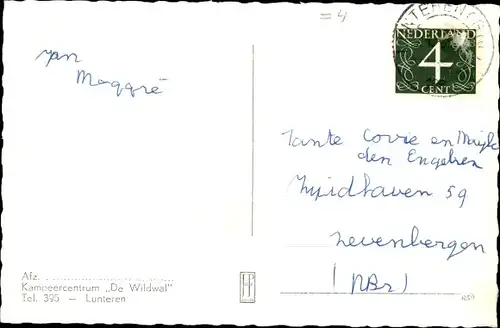 = 4
LUNTEREN
NEDERLAND
4
CENT
van
Maggré
Tante Corrie en
den Engelsen
Zuidhaven 59
Zevenbergen
(NBr)
Afz.
Kampeercentrum „De Wildwal"
Tel. 395 — Lunteren